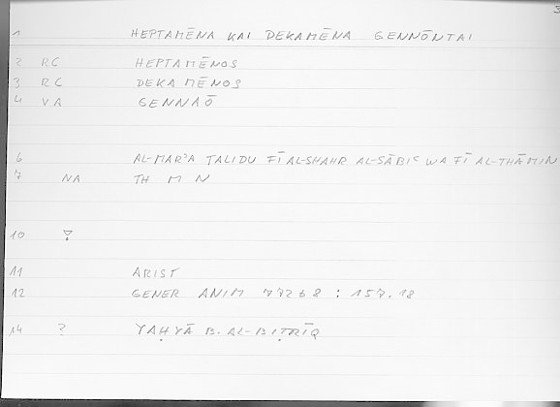 1 HEPTAMĒNA KAI DEKAMĒNA GENNŌNTAI
2 RC HEPTAMĒNOS
3 RC DEKAMĒNOS
4 VA GENNAŌ
6 AL-MARʾA TALIDU FĪ AL-SHAHR AL-SĀBIʿ WA FĪ AL-THĀMIN
7 NA TH M N
10
11 ARIST
12 GENER ANIM 772b8 : 157.18
14 ? YAḤYĀ B. AL-BIṬRĪQ